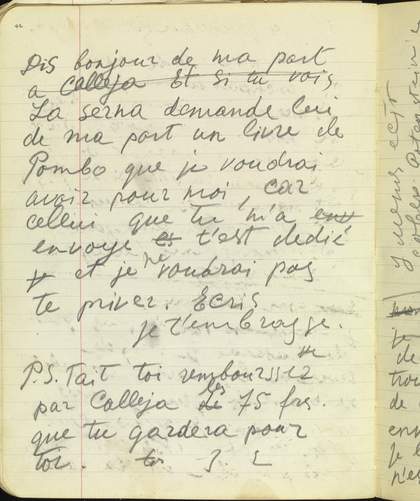 Dis bonjour de ma part
a Calleja Et si tu vois
La serna demande lui
de ma part un livre de
Pombo que je voudrai
avoir pour moi, car
cellui que tu m'a en
envoye es t'est dedié
et je ne voudrai pas
te priver. Ecris
je t'embrasse.
P.S. Tait toi rembourssez
par Calleja les 75 frs.
que tu gardera pour
toi.